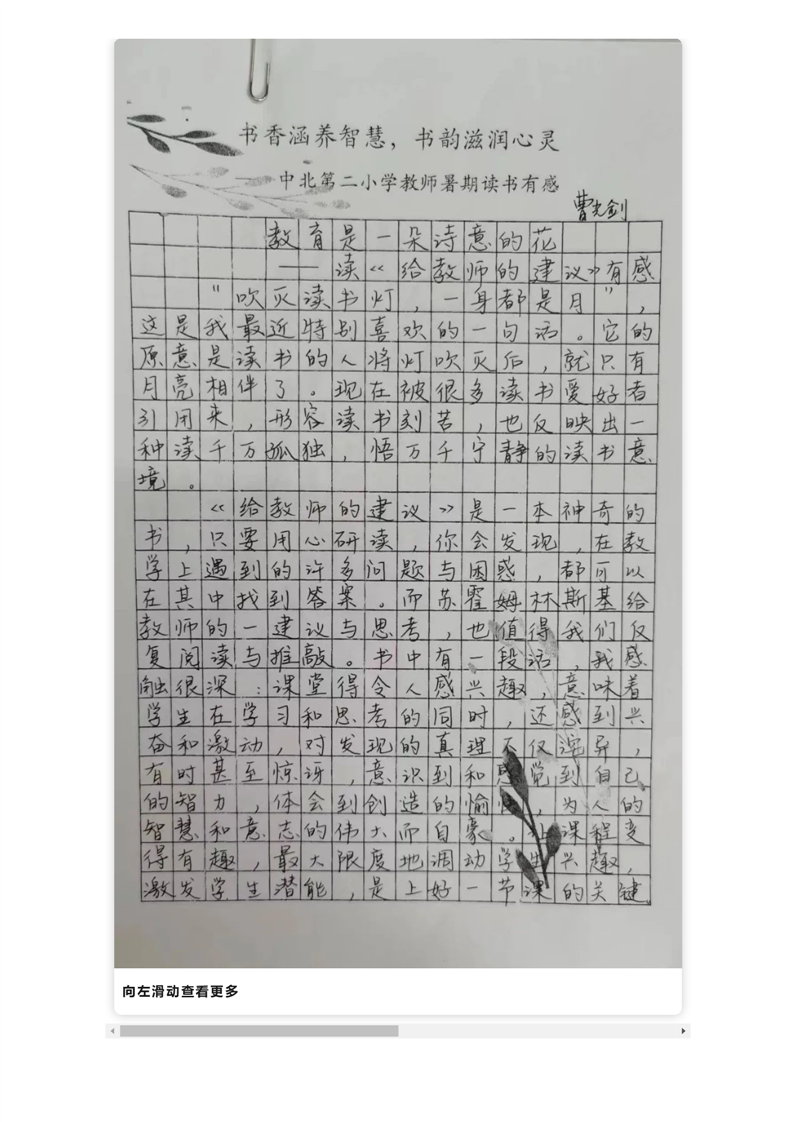 书香涵养智慧，书韵滋润心灵
中北第二小学教师暑期读书有感
曹光剑
教育是一朵诗意的花
——读《给教师的建议》有感
“吹灭读书灯，一身都是月”，
这是我最近特别喜欢的一句话。它的
原意是读书的人将灯吹灭后，就只有
月亮相伴了。现在被很多读书爱好者
引用来，形容读书刻苦，也反映出一
种读千万孤独，悟万千宁静的读书意
境。
《给教师的建议》是一本神奇的
书，只要用心研读，你会发现，在教
学上遇到的许多问题与困惑，都可以
在其中找到答案。而苏霍姆林斯基给
教师的一建议与思考，也值得我们反
复阅读与推敲。书中有一段话，我感
触很深：课堂得令人感兴趣，意味着
学生在学习和思考的同时，还感到兴
奋和激动，对发现的真理不仅诧异，
有时甚至惊讶，意识到和感觉到自己
的智力，体会到创造的愉快，为人的
智慧和意志的伟大而自豪。让课程变
得有趣，最大限度地调动学生兴趣，
激发学生潜能，是上好一节课的关键。
向左滑动查看更多